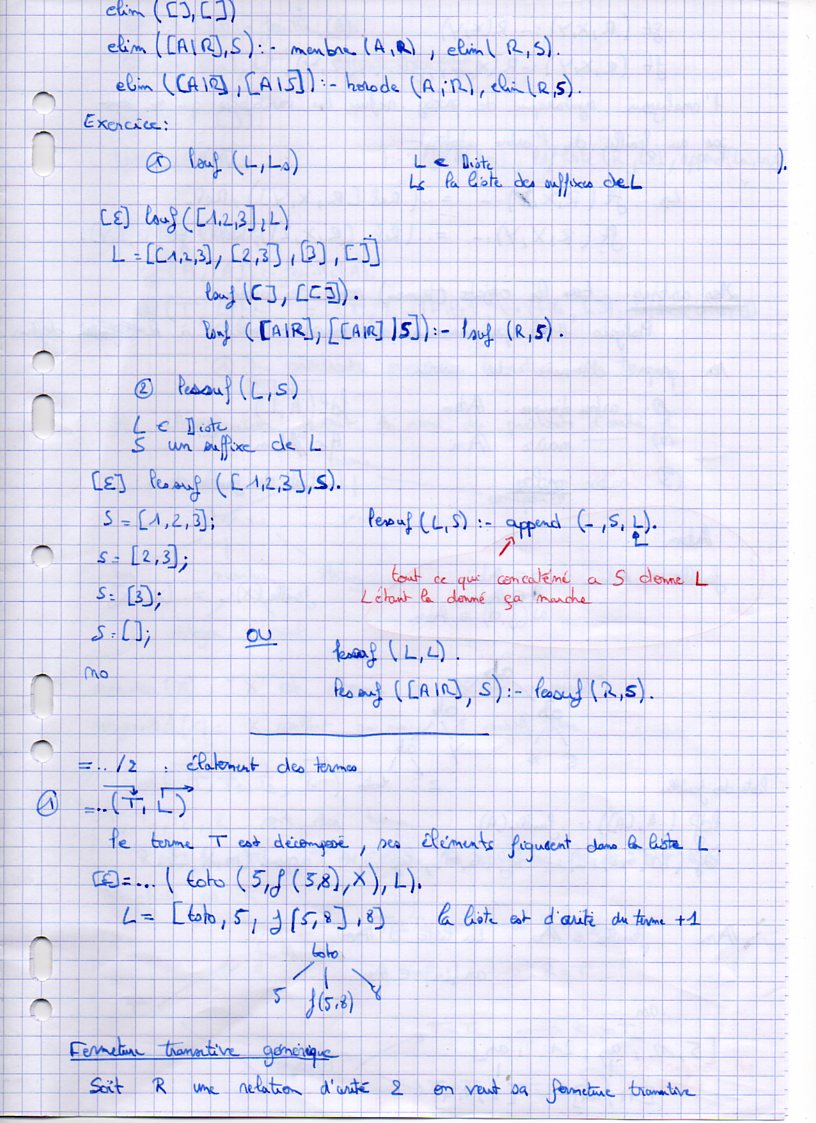 elim ([],[])
elim ([A|R],S) :- membre (A,R) , elim( R, S).
elim ([A|R] , [A|S]) :- horsde (A,R), elim(R,S).
Exercice:
① lsuf (L,Ls) L ∈ Diste
Ls la liste des suffixes de L ).
[E] lsuf([1,2,3],L)
L = [[1,2,3], [2,3] , [3] , []]
lsuf ([] , [[]]).
lsuf ([A|R], [[A|R] |S]) :- lsuf (R,S).
② lessuf (L,S)
L ∈ Diste
S un suffixe de L
[E] lessuf ([1,2,3],S).
S = [1,2,3];
S = [2,3];
S = [3];
S = [];
no
lessuf (L,S) :- append (-,S,L).
tout ce qui concaténé a S donne L
L étant la donné ça marche
OU
lessuf (L,L) .
lessuf ([A|R], S) :- lessuf (R,S).
=.. /2 : éclatement des termes
① =..(T, L)
le terme T est décomposé , ses éléments figurent dans la liste L .
[E] =... ( toto (5,f(5,8),X),L).
L = [toto, 5, f[5,8] ,8] la liste est d'arité du terme +1
toto
5 f(5,8) 8
Fermeture transitive générique
Soit R une relation d'arité 2 on veut sa fermeture transitive